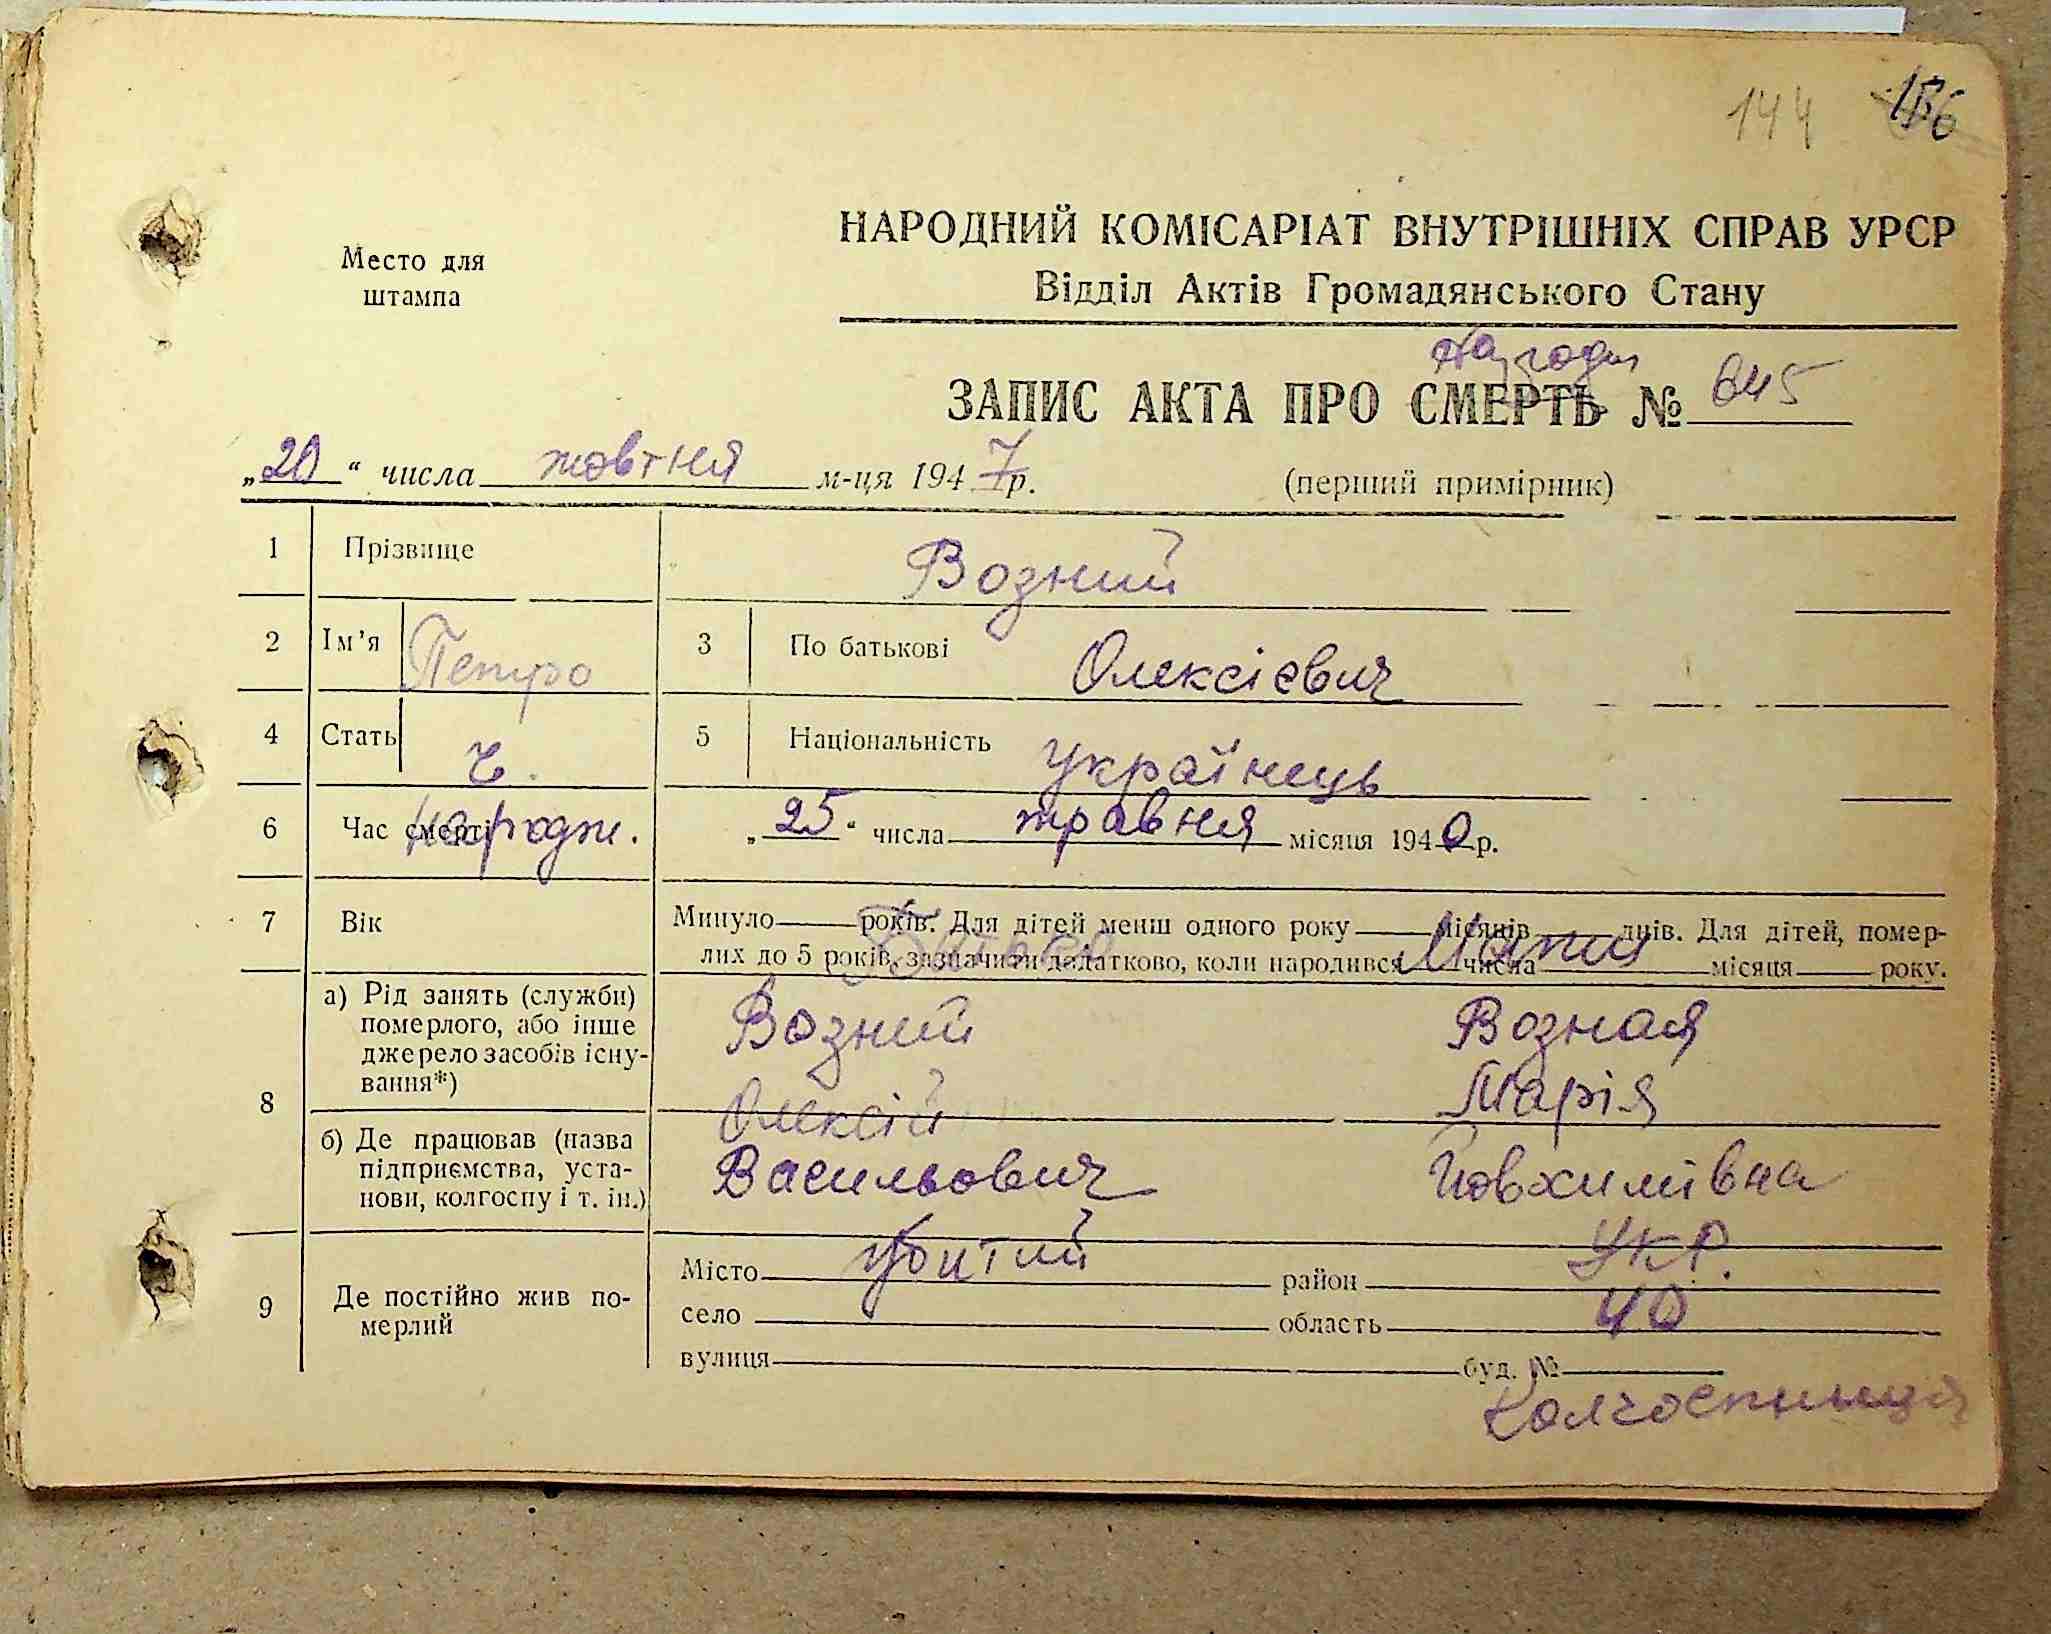 144 156
НАРОДНИЙ КОМІСАРІАТ ВНУТРІШНІХ СПРАВ УРСР
Место для штампа
Відділ Актів Громадянського Стану
ЗАПИС АКТА ПРО СМЕРТЬ № 645
„20“ числа жовтня м-ця 1947 р. (перший примірник)
1 Прізвище Возний
2 Ім'я Петро 3 По батькові Олексієвич
4 Стать ч. 5 Національність українець
6 Час смерті народж. „25“ числа травня місяця 1940 р.
7 Вік Минуло років. Для дітей менш одного року місяців днів. Для дітей, помер-
лих до 5 років, зазначити додатково, коли народився числа місяця року.
Батько Мати
8 а) Рід занять (служби) померлого, або інше джерело засобів існу-вання*)
Возний Возная
Олексій Марія
б) Де працював (назва підприємства, уста-нови, колгоспу і т. ін.)
Васильович Йовхимівна
9 Де постійно жив по-мерлий
Місто убитий район укр.
село область 40
вулиця буд. №
Колгоспниця